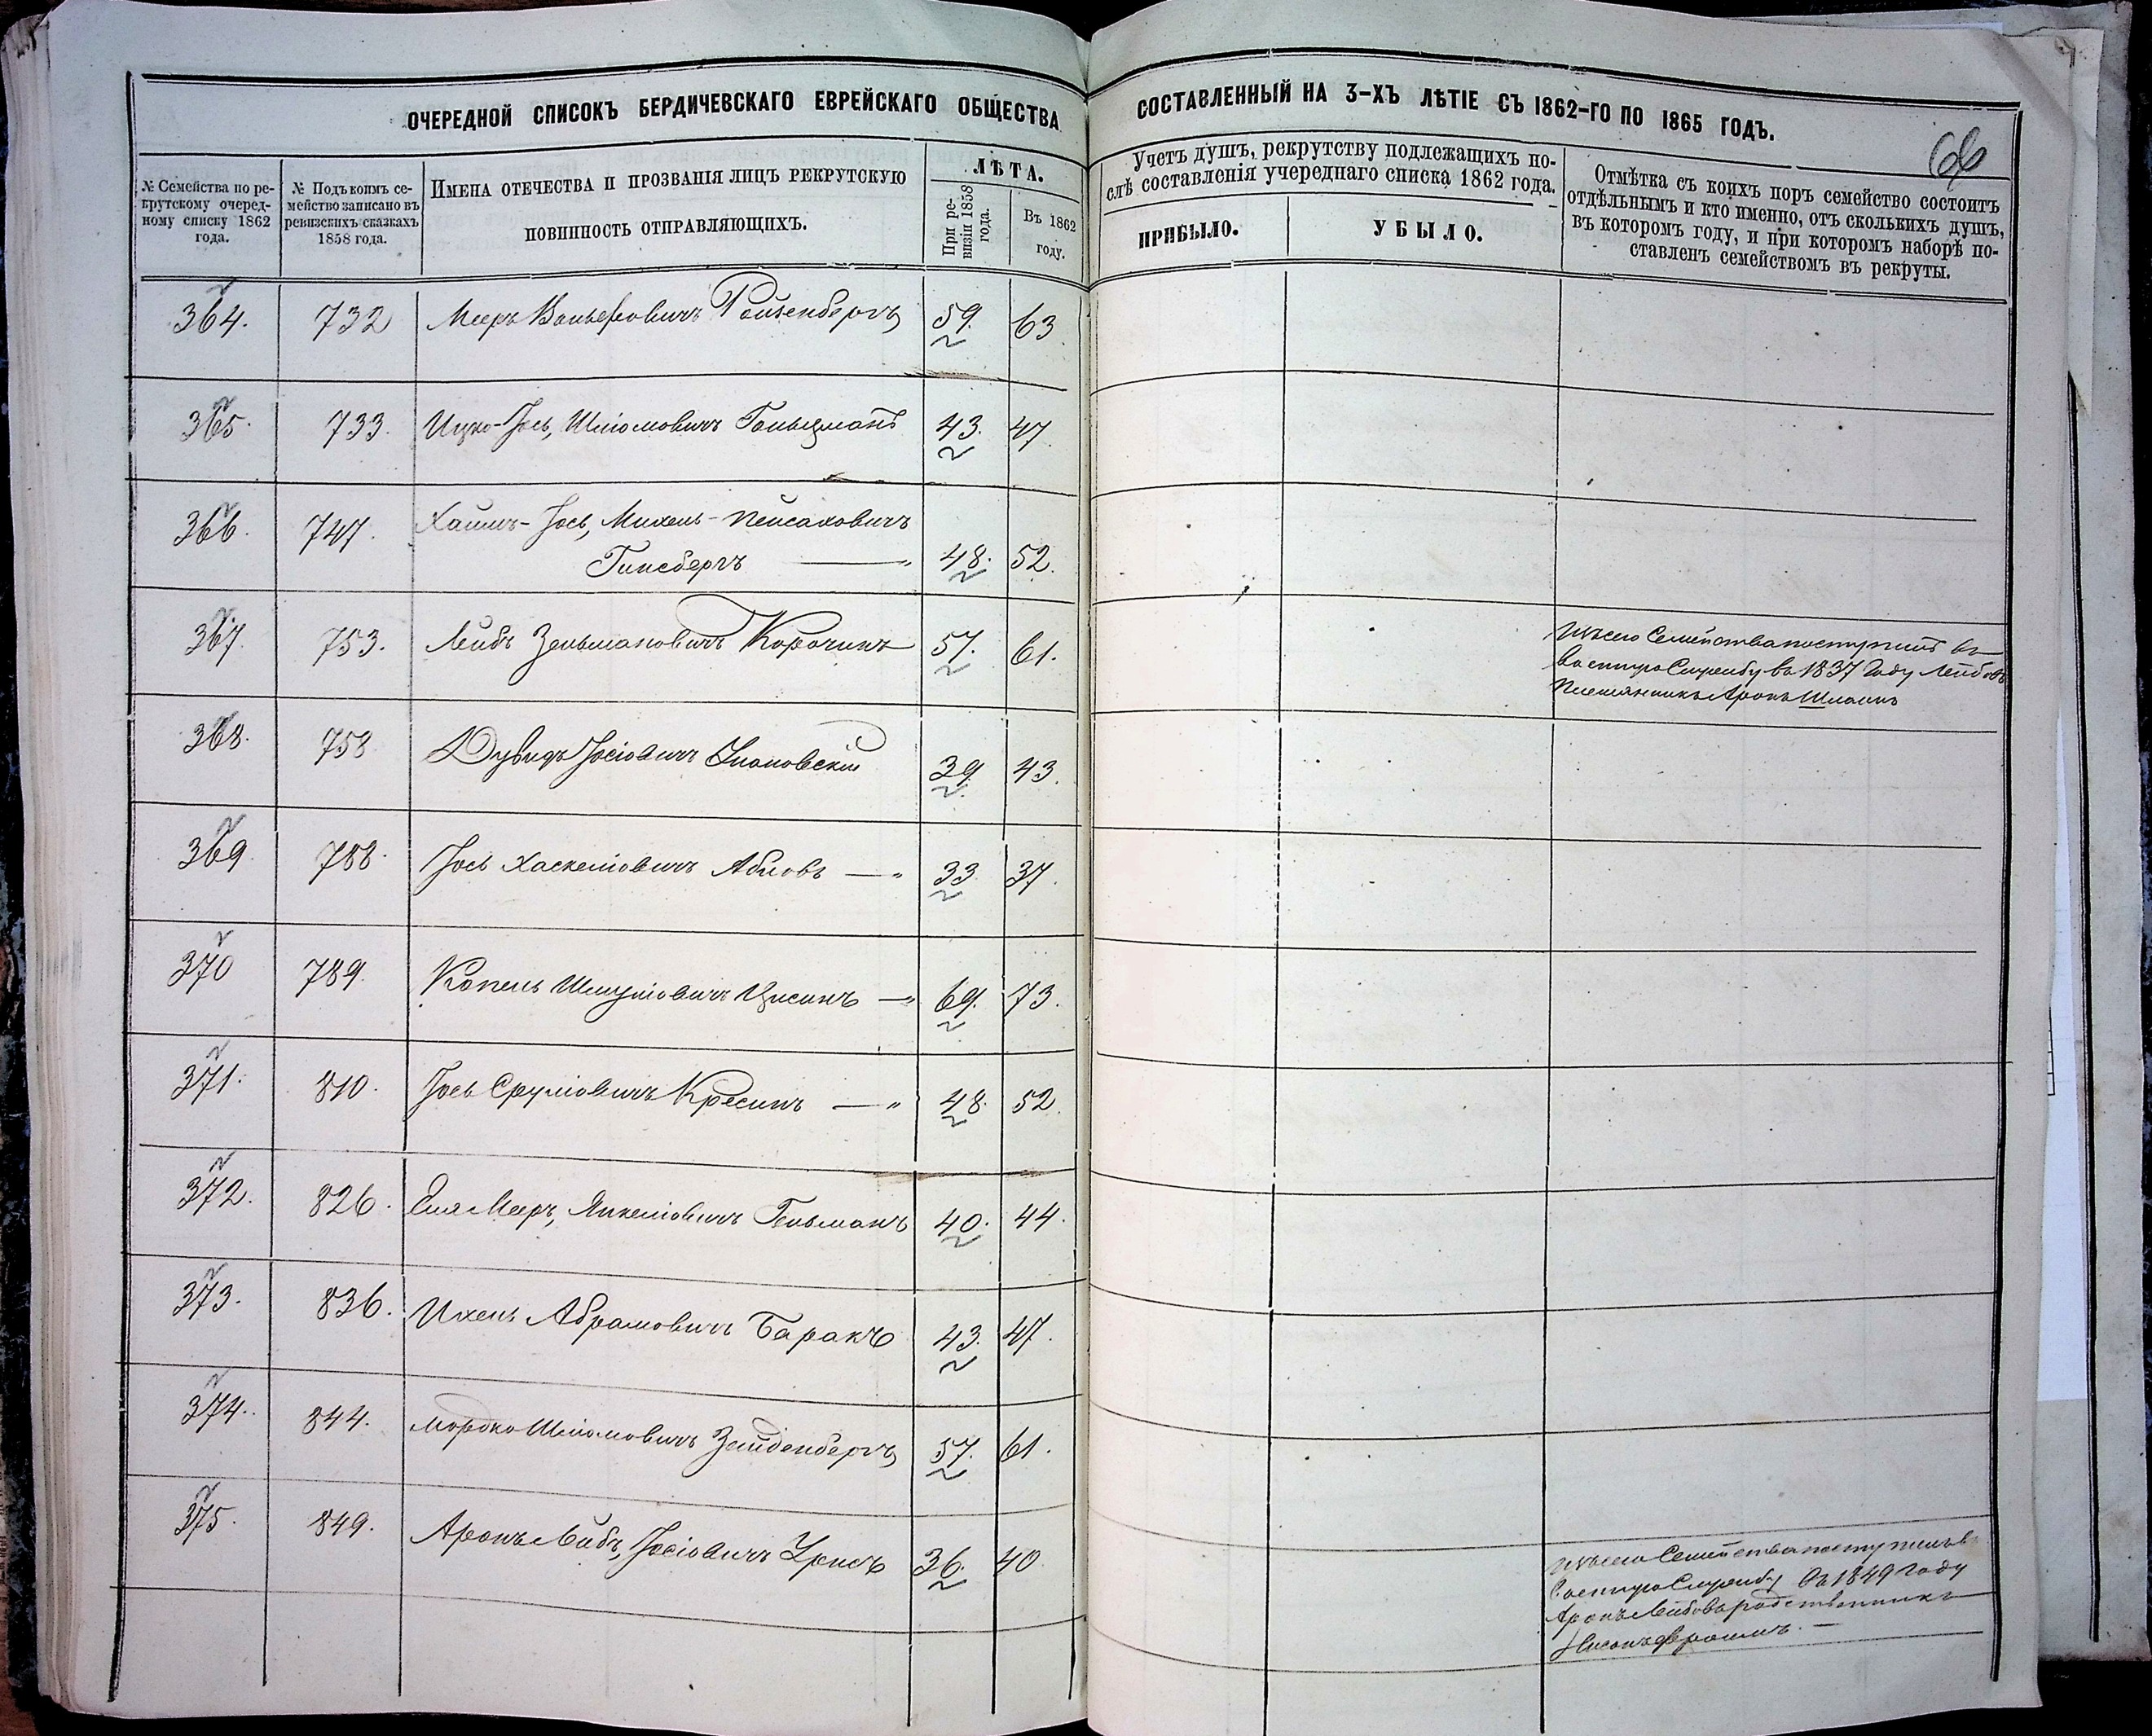 ОЧЕРЕДНОЙ СПИСОКЪ БЕРДИЧЕВСКАГО ЕВРЕЙСКАГО ОБЩЕСТВА СОСТАВЛЕННЫЙ НА 3-ХЪ ЛѢТІЕ СЪ 1862-ГО ПО 1865 ГОДЪ.
№ Семейства по ре-
крутскому очеред-
ному списку 1862
года.
№ Подъ коимъ се-
мейство записано въ
ревизскихъ сказкахъ
1858 года.
ИМЕНА ОТЕЧЕСТВА И ПРОЗВАНІЯ ЛИЦЪ РЕКРУТСКУЮ
ПОВИННОСТЬ ОТПРАВЛЯЮЩИХЪ.
ЛѢТА.
При ре-
визіи 1858
года.
Въ 1862
году.
Учетъ душъ, рекрутству подлежащихъ по-
слѣ составленія учереднаго списка 1862 года.
ПРИБЫЛО.
УБЫЛО.
Отмѣтка съ коихъ поръ семейство состоитъ
отдѣльнымъ и кто именно, отъ сколькихъ душъ,
въ которомъ году, и при которомъ наборѣ по-
ставленъ семействомъ въ рекруты.
364. 732 Мееръ Вольфовичъ Ройзенбергъ 59. 63
365. 733. Ицко-Іось, Шліомовичъ Гольцманъ 43. 47
366. 747. Хаимъ-Іось, Михель-Пейсаховичъ
Гинсбергъ 48. 52.
367. 753. Лейбъ Зельмановичъ Корочинъ 57. 61.
Изъ сего Семейства поступилъ въ
военную Службу въ 1837 Году Лейбовъ
Племянникъ Аронъ Шлаинъ
368. 758 Дувидъ Іосіовичъ 39. 43.
369. 788. Іось Хаскеліовичъ Абловъ 33 37.
370 789. Копель Шмуліовичъ Цисинъ 69. 73.
371. 810. Іось Сруліовичъ Кресинъ 48. 52.
372. 826. Еля Мееръ, Янкеліовичъ Гельманъ 40. 44.
373. 836. Ихель Абрамовичъ Баракъ 43. 47.
374. 844. Мордко Шліомовичъ Зейденбергъ 57. 61.
375. 849. Аронъ Лейбъ, Іосіовичъ 36. 40
Изъ сего Семейства поступилъ въ
Военную Службу въ 1849 Году
Аронъ Лейбовъ родственникъ